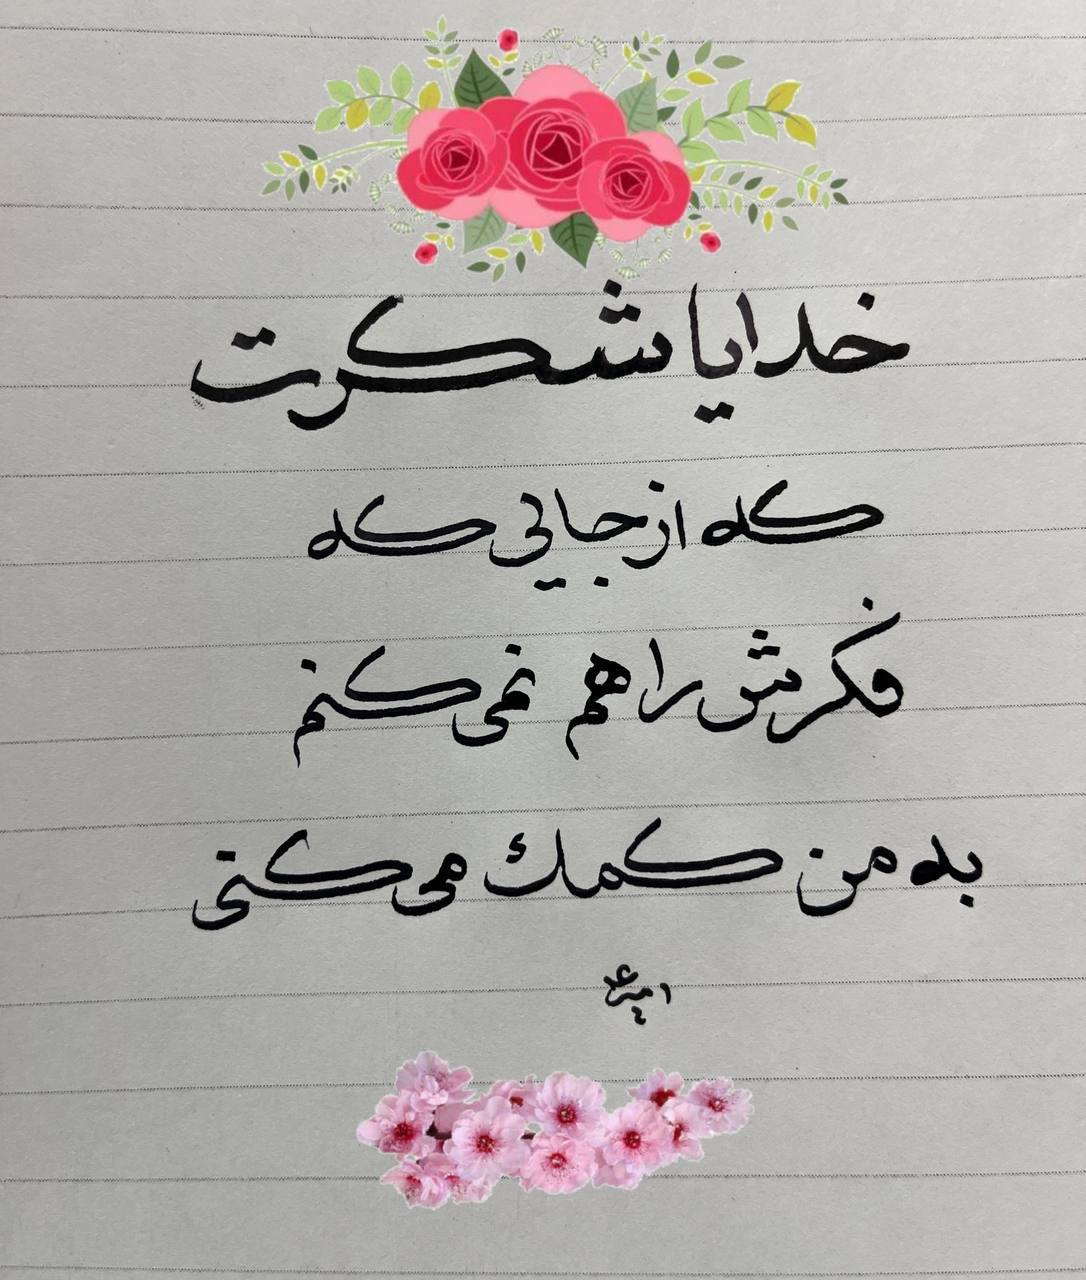 خدایا شکرت
که از جایی که
فکرش را هم نمی‌کنم
به من کمک می‌کنی